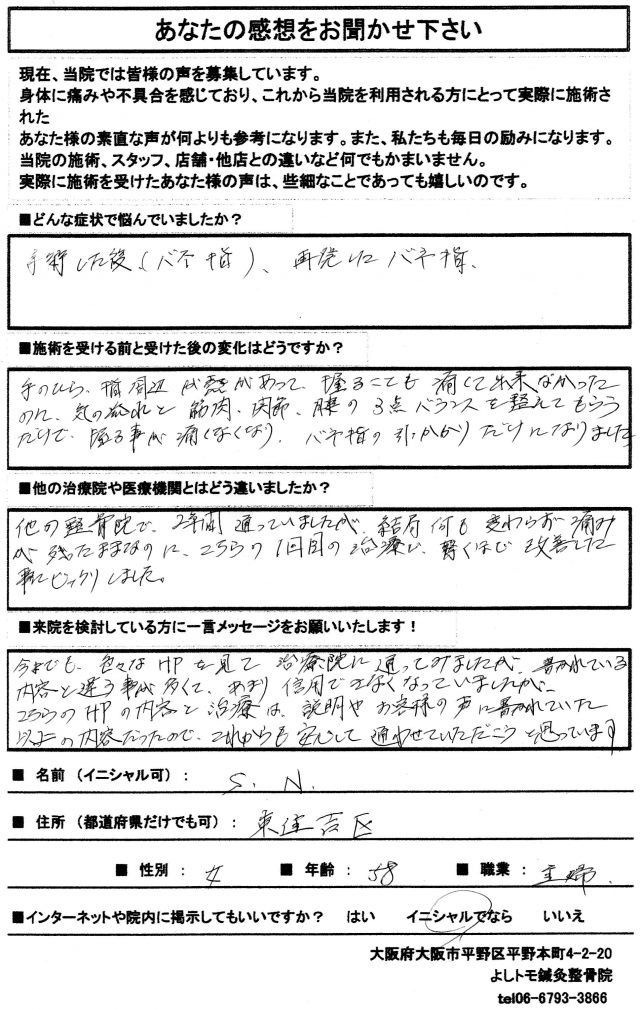 あなたの感想をお聞かせ下さい
現在、当院では皆様の声を募集しています。
身体に痛みや不具合を感じており、これから当院を利用される方にとって実際に施術さ
れた
あなた様の素直な声が何よりも参考になります。また、私たちも毎日の励みになります。
当院の施術、スタッフ、店舗・他店との違いなど何でもかまいません。
実際に施術を受けたあなた様の声は、些細なことであっても嬉しいのです。
■どんな症状で悩んでいましたか？
手術した後(バネ指)、再発したバネ指、
■施術を受ける前と受けた後の変化はどうですか？
手のひら、指周辺 が あって、握ることも痛くて出来なかった
のに、気の流れと筋肉、関節、腰の3点バランスを整えてもらう
だけで、握る事が痛くなくなり、バネ指の引っかかりだけになりました
■他の治療院や医療機関とはどう違いましたか？
他の整骨院で、2年間通っていましたが、結局何も変わらず痛み
が残ったままなのに、こちらの1回目の治療で、驚くほど改善した
事にビックリしました。
■来院を検討している方に一言メッセージをお願いいたします！
今までも、色々なHPを見て治療院に通ってみましたが、書かれている
内容と違う事が多くて、あまり信用できなくなっていましたが、
こちらのHPの内容と治療は、説明やお客様の声に書かれていた
以上の内容だったので、これからも安心して通わせていただこうと思っています
■ 名前（イニシャル可）： S. N.
■ 住所（都道府県だけでも可）： 東住吉区
■ 性別： 女 ■ 年齢： 58 ■ 職業： 主婦.
■インターネットや院内に掲示してもいいですか？ はい イニシャルでなら いいえ
大阪府大阪市平野区平野本町4-2-20
よしトモ鍼灸整骨院
tel06-6793-3866